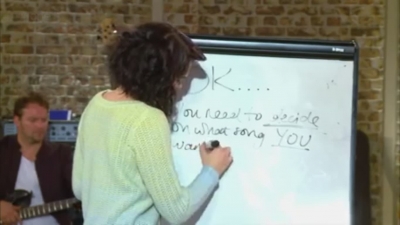 OK....
ou need to decide
on what song YOU
wan